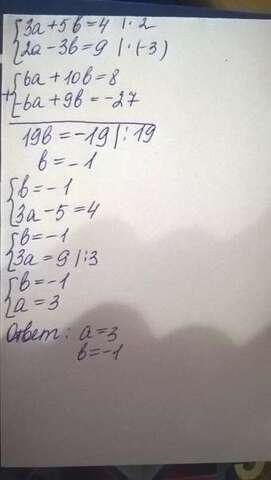 {3a+5b=4 |·2
{2a-3b=9 |·(-3)
{6a+10b=8
+{-6a+9b=-27
19b=-19 |:19
b=-1
{b=-1
{3a-5=4
{b=-1
{3a=9 |:3
{b=-1
{a=3
Ответ: a=3
b=-1